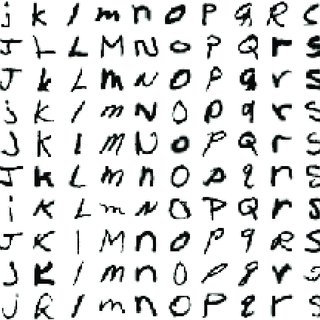 j k l m n o P q R S
J L L M N o P Q r S
J k L m n O P q r S
j k l m N O P q r S
J K l M N o P Q r S
J K L m n O p q n S
i K L m N O P Q r S
J K l M n o P q R S
j K l m n O p q r S
j R l m n o P q r S